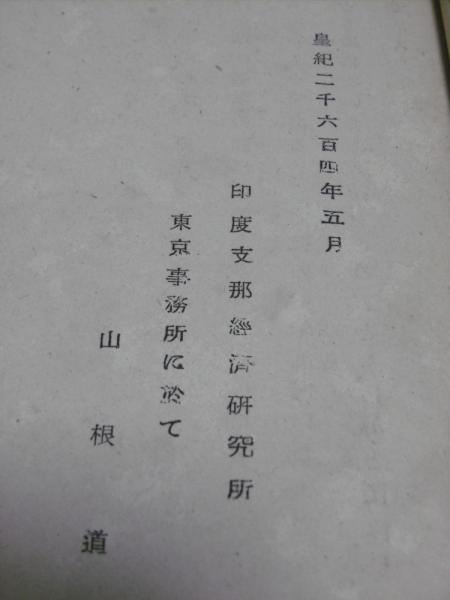 皇紀二千六百四年五月
印度支那經濟研究所
東京事務所に於て
山根道